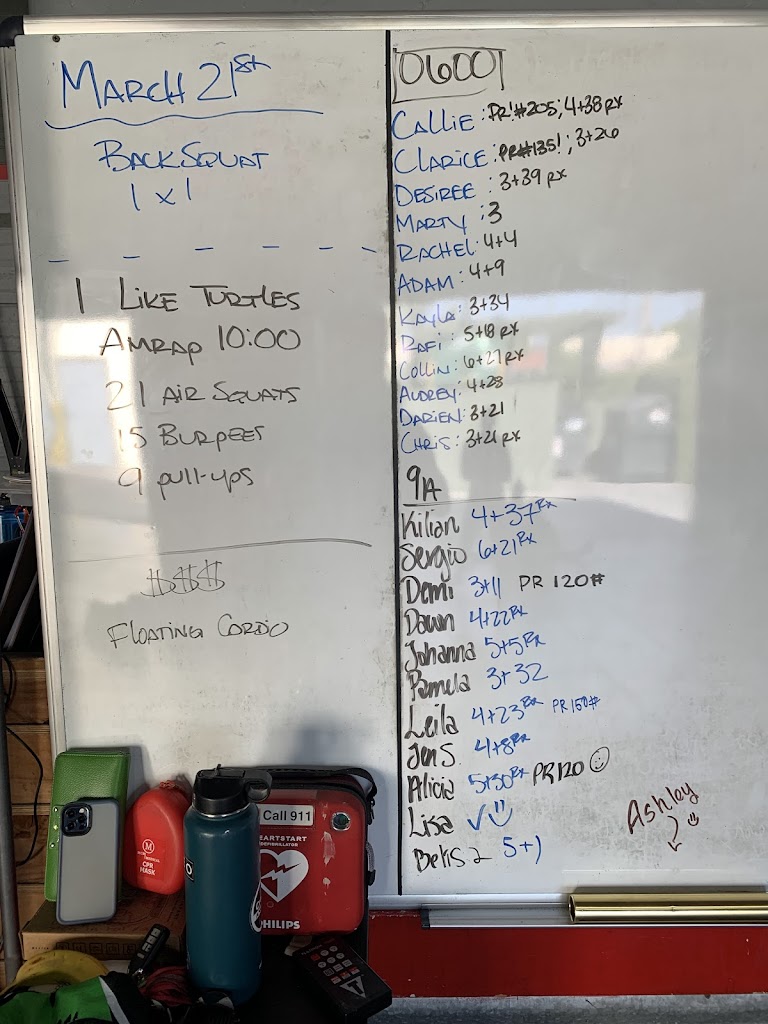 MARCH 21st
BACK SQUAT
1 x 1
I LIKE TURTLES
AMRAP 10:00
21 AIR SQUATS
15 BURPEES
9 PULL-UPS
$$$
FLOATING CARDIO
0600
CALLIE: PR!#205; 4+38 RX
CLARICE: PR#135!; 3+26
DESIREE: 3+39 RX
MARTY: 3
RACHEL: 4+4
ADAM: 4+9
KAYLA: 3+34
RAFI: 5+18 RX
COLLIN: 6+27 RX
AUDREY: 4+28
DARIEN: 3+21
CHRIS: 3+21 RX
9A
Kilian 4+37 RX
Sergio 6+21 RX
Demi 3+11 PR 120#
Dawn 4+22 RX
Johanna 5+5 RX
Pamela 3+32
Leila 4+23 RX PR 150#
Jen S. 4+8 RX
Alicia 5+30 RX PR 120
Lisa ✓
5+1
Ashley
Call 911
HEARTSTART
DEFIBRILLATOR
PHILIPS
CPR
MASK